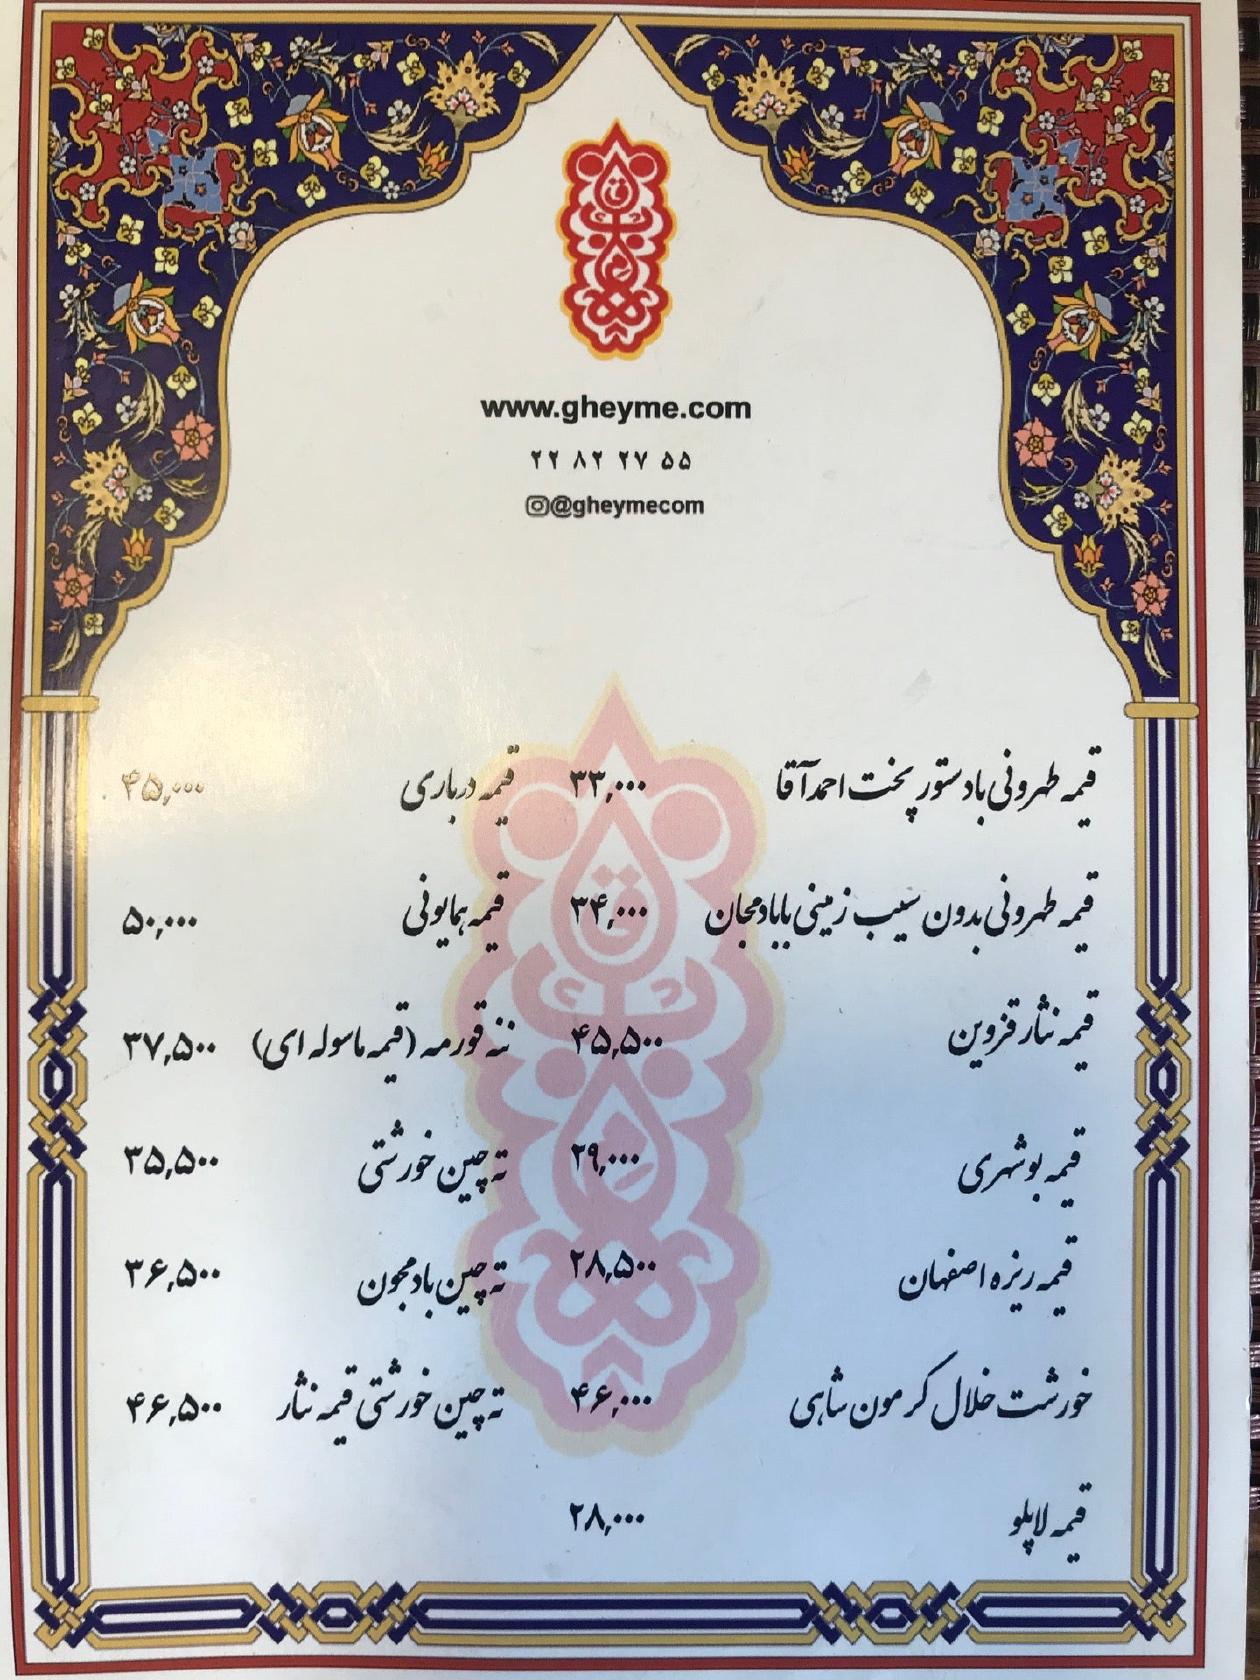 www.gheyme.com
۲۲ ۸۲ ۲۷ ۵۵
@gheymecom
قیمه طهرونی با دستور پخت احمدآقا ۳۳,۰۰۰
قیمه درباری ۴۵,۰۰۰
قیمه طهرونی بدون سیب زمینی یا بادمجان ۳۴,۰۰۰
قیمه همایونی ۵۰,۰۰۰
قیمه نثار قزوین ۴۵,۵۰۰
ننه قورمه (قیمه ماسوله ای) ۳۷,۵۰۰
قیمه بوشهری ۲۹,۰۰۰
ته چین خورشتی ۳۵,۵۰۰
قیمه ریزه اصفهان ۲۸,۵۰۰
ته چین بادمجون ۳۶,۵۰۰
خورشت خلال کرمون شاهی ۴۶,۰۰۰
ته چین خورشتی قیمه نثار ۴۶,۵۰۰
قیمه لاپلو ۲۸,۰۰۰